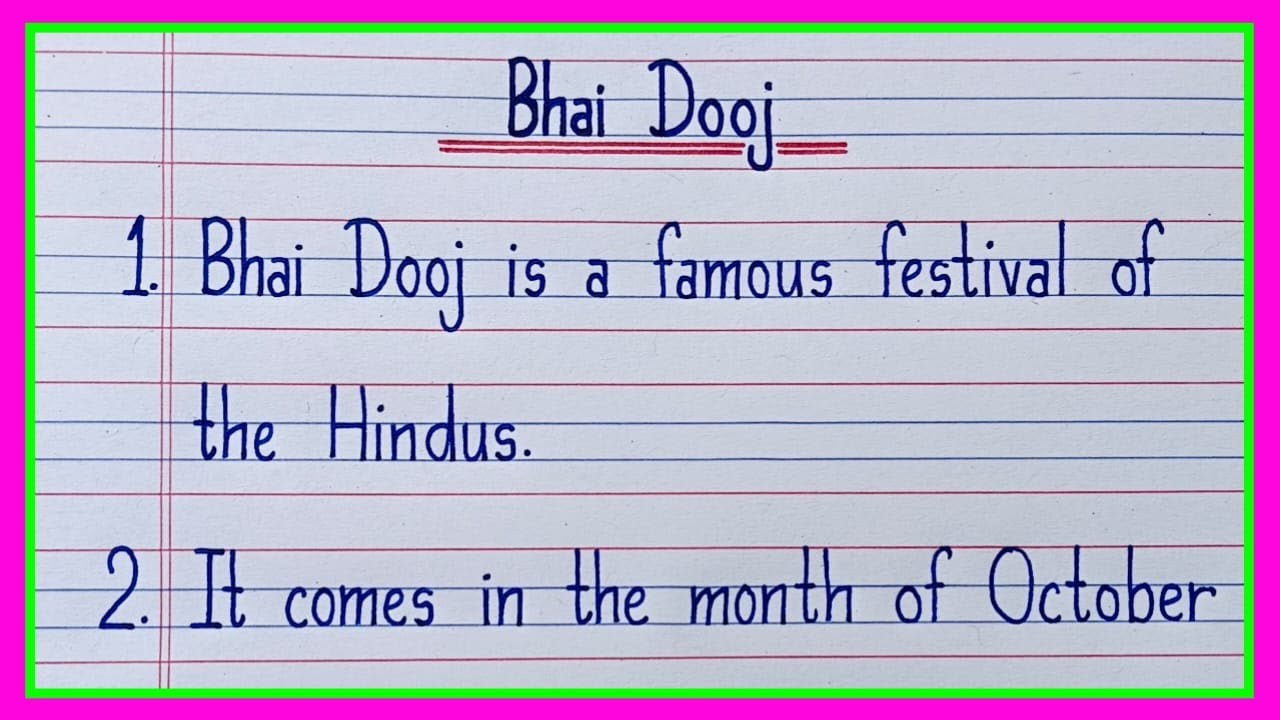 Bhai Dooj
1. Bhai Dooj is a famous festival of
the Hindus.
2. It comes in the month of October